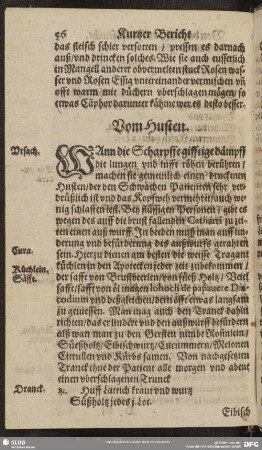 56 Kurtzer Bericht
das fleisch schier versotten / pressen es darnach
auß / vnd drincken solches. Wie sie auch eusserlich
in Mangell anderer obvermelten stuck Rosen was-
ser vnd Rosen Essig vntereinander vermischen vñ
offt warm mit düchern vberschlagen mögen / so
etwas Cãphor darunter kähme wer es desto besser.
Vom Husten.
Vrsach.
Wann die Scharpffe gifftige dämpff
die lungen vnd lufft röhen berühren /
machen sie gemeinlich einen druckenen
Husten / der den Schwachen Patienten sehr ver-
drüßlich ist vnd das Kopfweh vermehrt / auch we-
nig schlaffen lest. Bey flüssigen Personen / gibt es
wegen des auff die brust fallenden Catharri zu zei-
ten einen auß wurff. In beeden muß man auff lin-
derung vnd befürderung des außwurffs gerahten
Cura.
sein. Hierzu dienen am besten die weisse Tragant
Küchlein.
küchlin in den Apotecken jeder zeit zubekommen /
Säfft.
alß safft von Brustbeerlein / von süeß Holtz / Veiel
safft / safft von öl magen lohoch de papavere Dia-
codium vnd deßgleichen / dern offt etwas langsam
zu geniessen. Man mag auch den Tranck dahin
richten / das er linder vnd den außwurff befürdere
alß wan man zu den Gersten nimbt Rosinlein /
Süeßholtz / Eibischwurtz / Cucummern / Melonen
Citrullen vnd Kürbs samen. Von nachgesetzten
Tranck thue der Patient alle morgen vnd abent
einen vberschlagenen Trunck
Dranck.
℞. Huff Lattich kraut vnd wurtz
Süßholtz jedes j. Lot.
Eibisch
SLUB
DFG